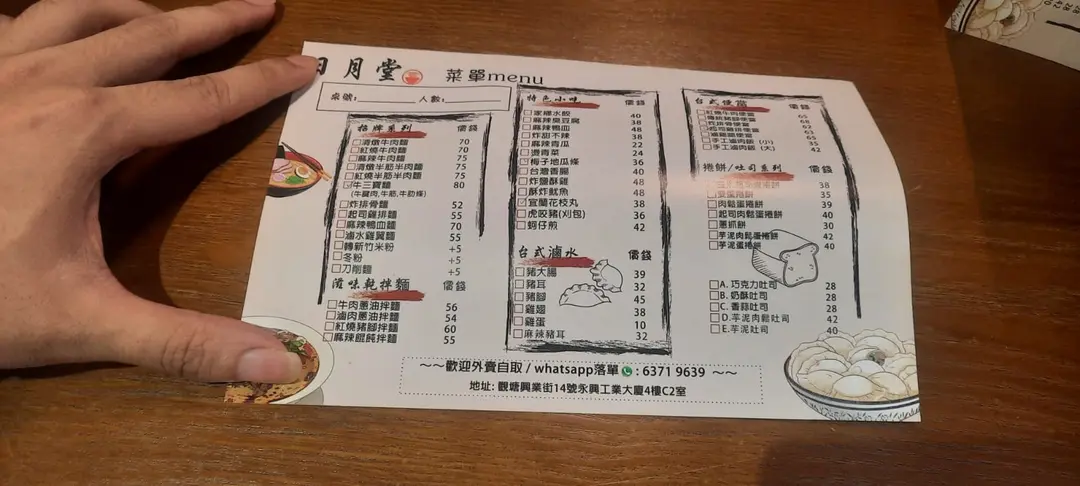 日月堂 菜單menu
枱號: 人數:
招牌系列 價錢
清燉牛肉麵 70
紅燒牛肉麵 70
麻辣牛肉麵 75
清燉半筋半肉麵 75
紅燒半筋半肉麵 75
牛三寶麵 80
(牛腱肉,牛筋,牛肋條)
炸排骨麵 52
起司雞排麵 55
麻辣鴨血麵 70
滷水雞翼麵 55
轉新竹米粉 +5
冬粉 +5
刀削麵 +5
滋味乾拌麵 價錢
牛肉蔥油拌麵 56
滷肉蔥油拌麵 54
紅燒豬腳拌麵 60
麻辣餛飩拌麵 55
特色小吃 價錢
家鄉水餃 40
麻辣臭豆腐 38
麻辣鴨血 48
炸甜不辣 38
麻辣青瓜 22
燙青菜 24
梅子地瓜條 36
台灣香腸 40
炸鹽酥雞 48
酥炸魷魚 48
宜蘭花枝丸 38
虎咬豬(刈包) 36
蚵仔煎 42
台式滷水 價錢
豬大腸 39
豬耳 32
豬腳 45
雞翅 38
雞蛋 10
麻辣豬耳 32
台式便當 價錢
65
68
62
63
65
手工滷肉飯 (小) 35
手工滷肉飯 (大) 42
捲餅/吐司系列 價錢
38
35
肉鬆蛋捲餅 39
起司肉鬆蛋捲餅 40
蔥抓餅 30
芋泥肉鬆蛋捲餅 42
芋泥蛋捲餅 40
A. 巧克力吐司 28
B. 奶酥吐司 28
C. 香蒜吐司 28
D.芋泥肉鬆吐司 42
E.芋泥吐司 40
~~歡迎外賣自取 / whatsapp落單 : 6371 9639 ~~
地址: 觀塘興業街14號永興工業大廈4樓C2室